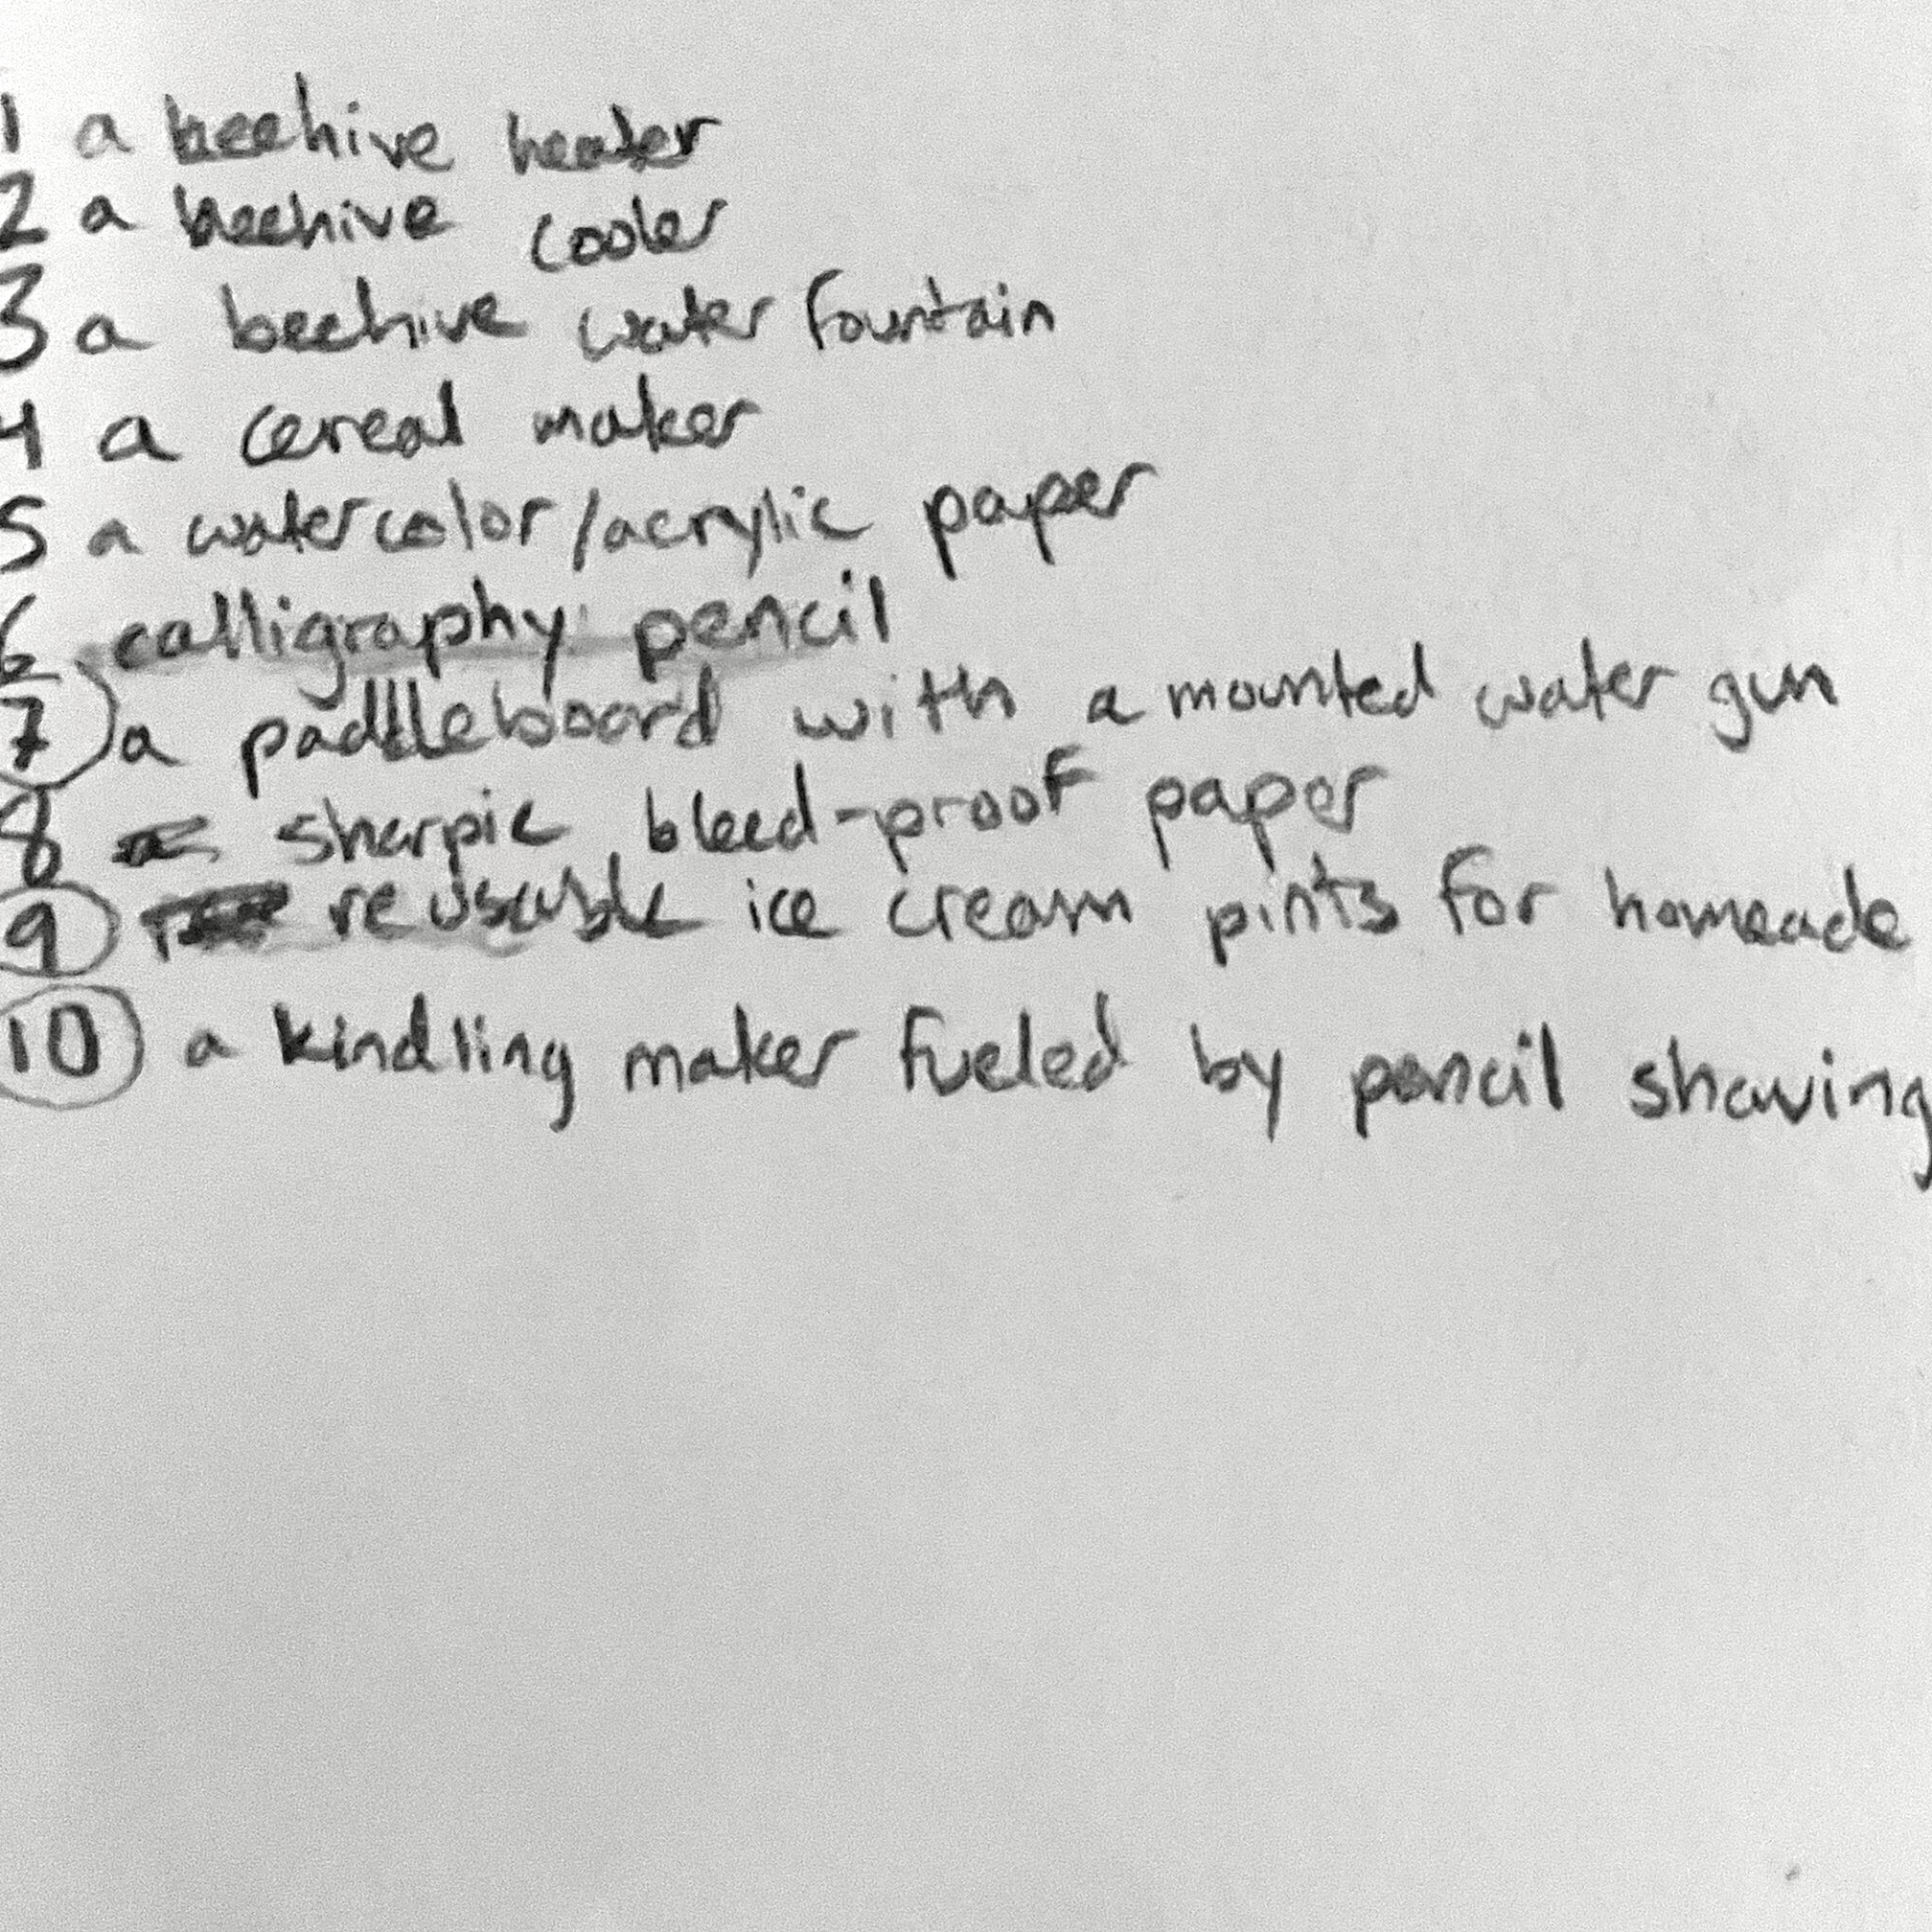 1 a beehive heater
2 a beehive cooler
3 a beehive water fountain
4 a cereal maker
5 a watercolor/acrylic paper
6 calligraphy pencil
7 a paddleboard with a mounted water gun
8 sharpie bleed-proof paper
9 reusable ice cream pints for homeade
10 a kindling maker fueled by pencil shaving